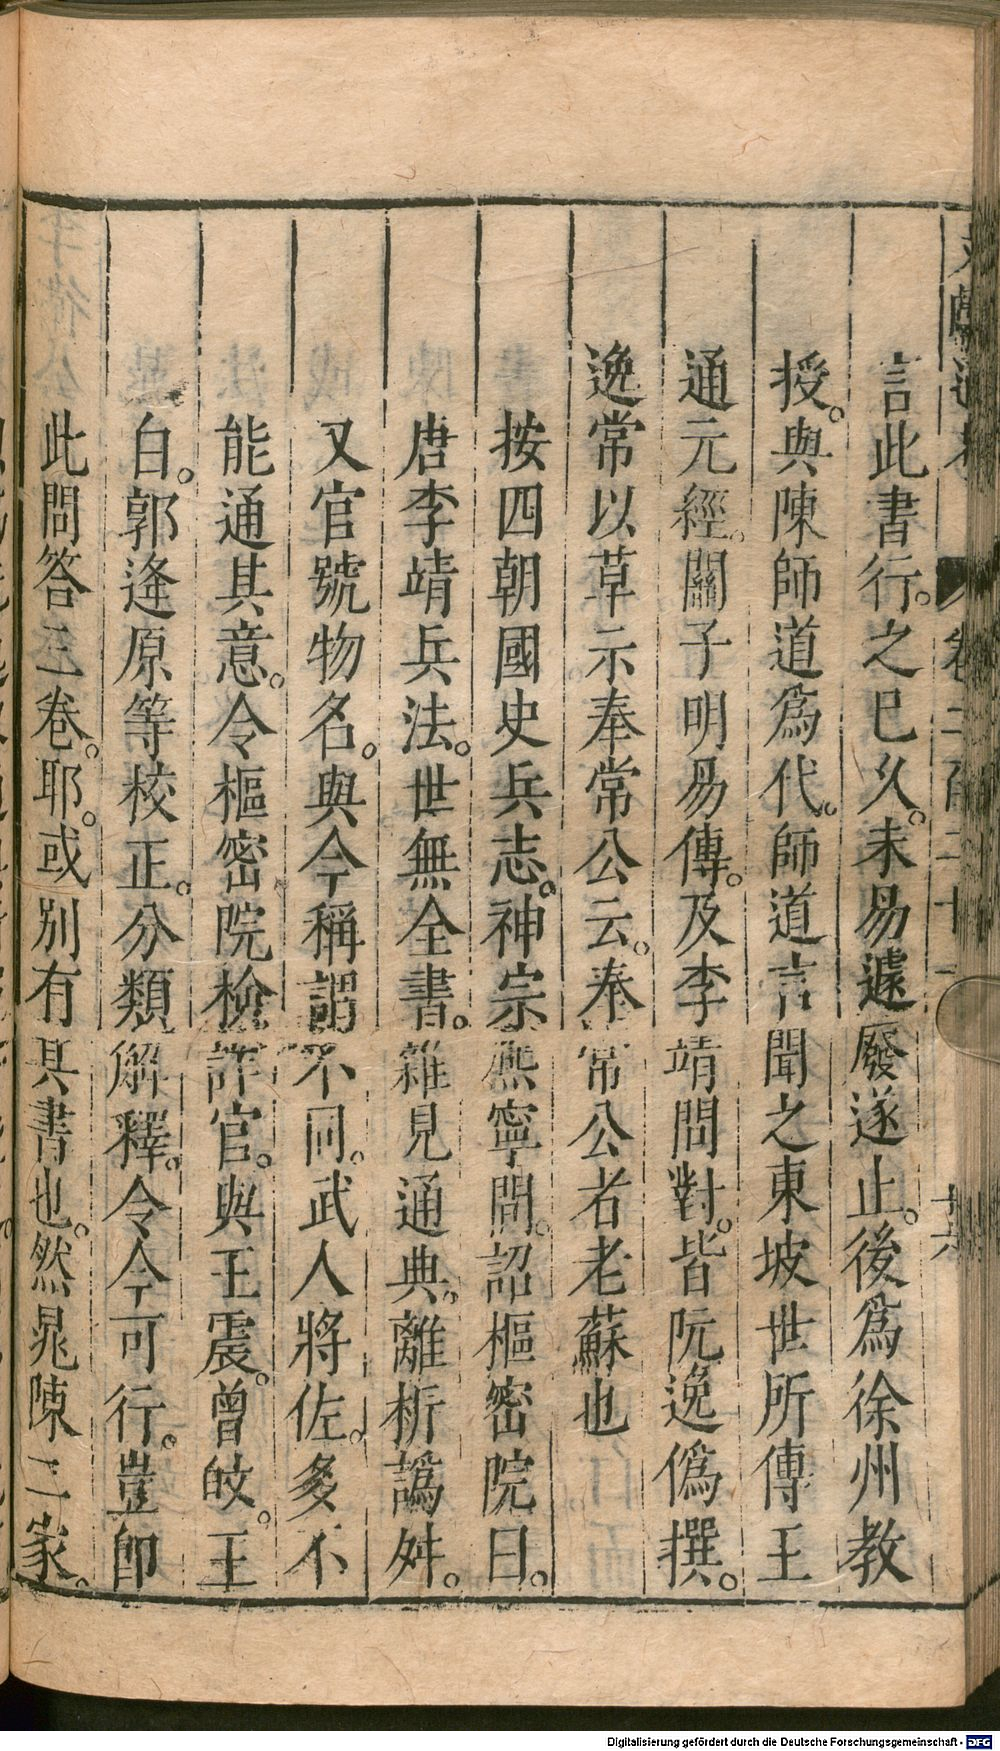 言此書行。之巳久。未易遽廢遂止。後爲徐州教
授。與陳師道爲代。師道言聞之東坡世所傳王
通元經。關子明易傳。及李靖問對。皆阮逸僞撰。
逸常以草示奉常公云。奉常公者老蘇也
按四朝國史兵志。神宗熙寧間。詔樞密院曰。
唐李靖兵法。世無全書。雜見通典。離析譌舛。
又官號物名。與今稱謂不同。武人將佐。多不
能通其意。令樞密院檢詳官。與王震。曾旼。王
白。郭逄原等校正。分類解釋。令今可行。豈卽
此問答三卷。耶。或別有其書也。然晁陳二家。
卷二百二十一
十六
Digitalisierung gefördert durch die Deutsche Forschungsgemeinschaft - DFG